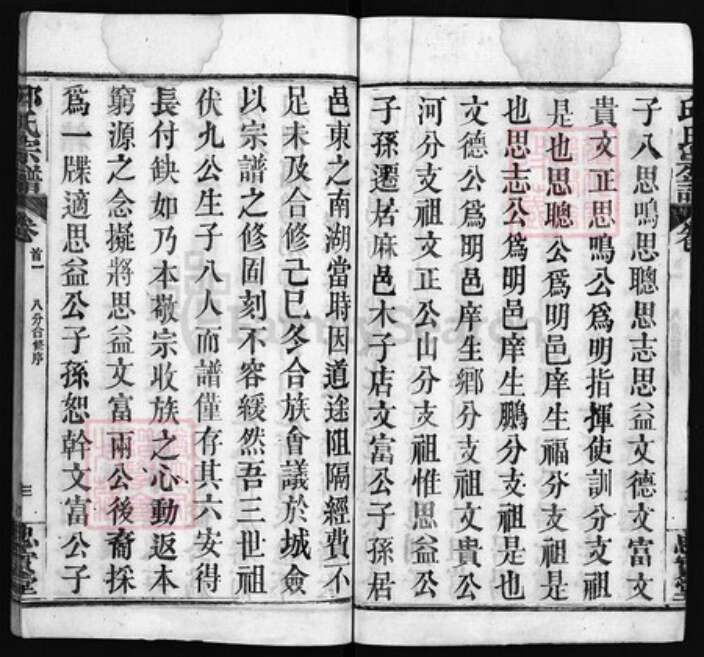 子八思鳴思聰思志思益文德文富文
貴文正思鳴公爲明指揮使訓分支祖
是也思聰公爲明邑庠生福分支祖是
也思志公爲明邑庠生鵬分支祖是也
文德公爲明邑庠生鄉分支祖文貴公
河分支祖文正公山分支祖惟思益公
子孫遷居麻邑木子店文富公子孫居
邑東之南湖當時因道途阻隔經費不
足未及合修己巳冬合族會議於城僉
以宗譜之修固刻不容緩然吾三世祖
伏九公生子八人而譜僅存其六安得
長付缺如乃本敬宗收族之心動返本
窮源之念擬將思益文富兩公後裔採
爲一牒適思益公子孫恕幹文富公子
氏宗譜
卷
首一
八分合修序
三